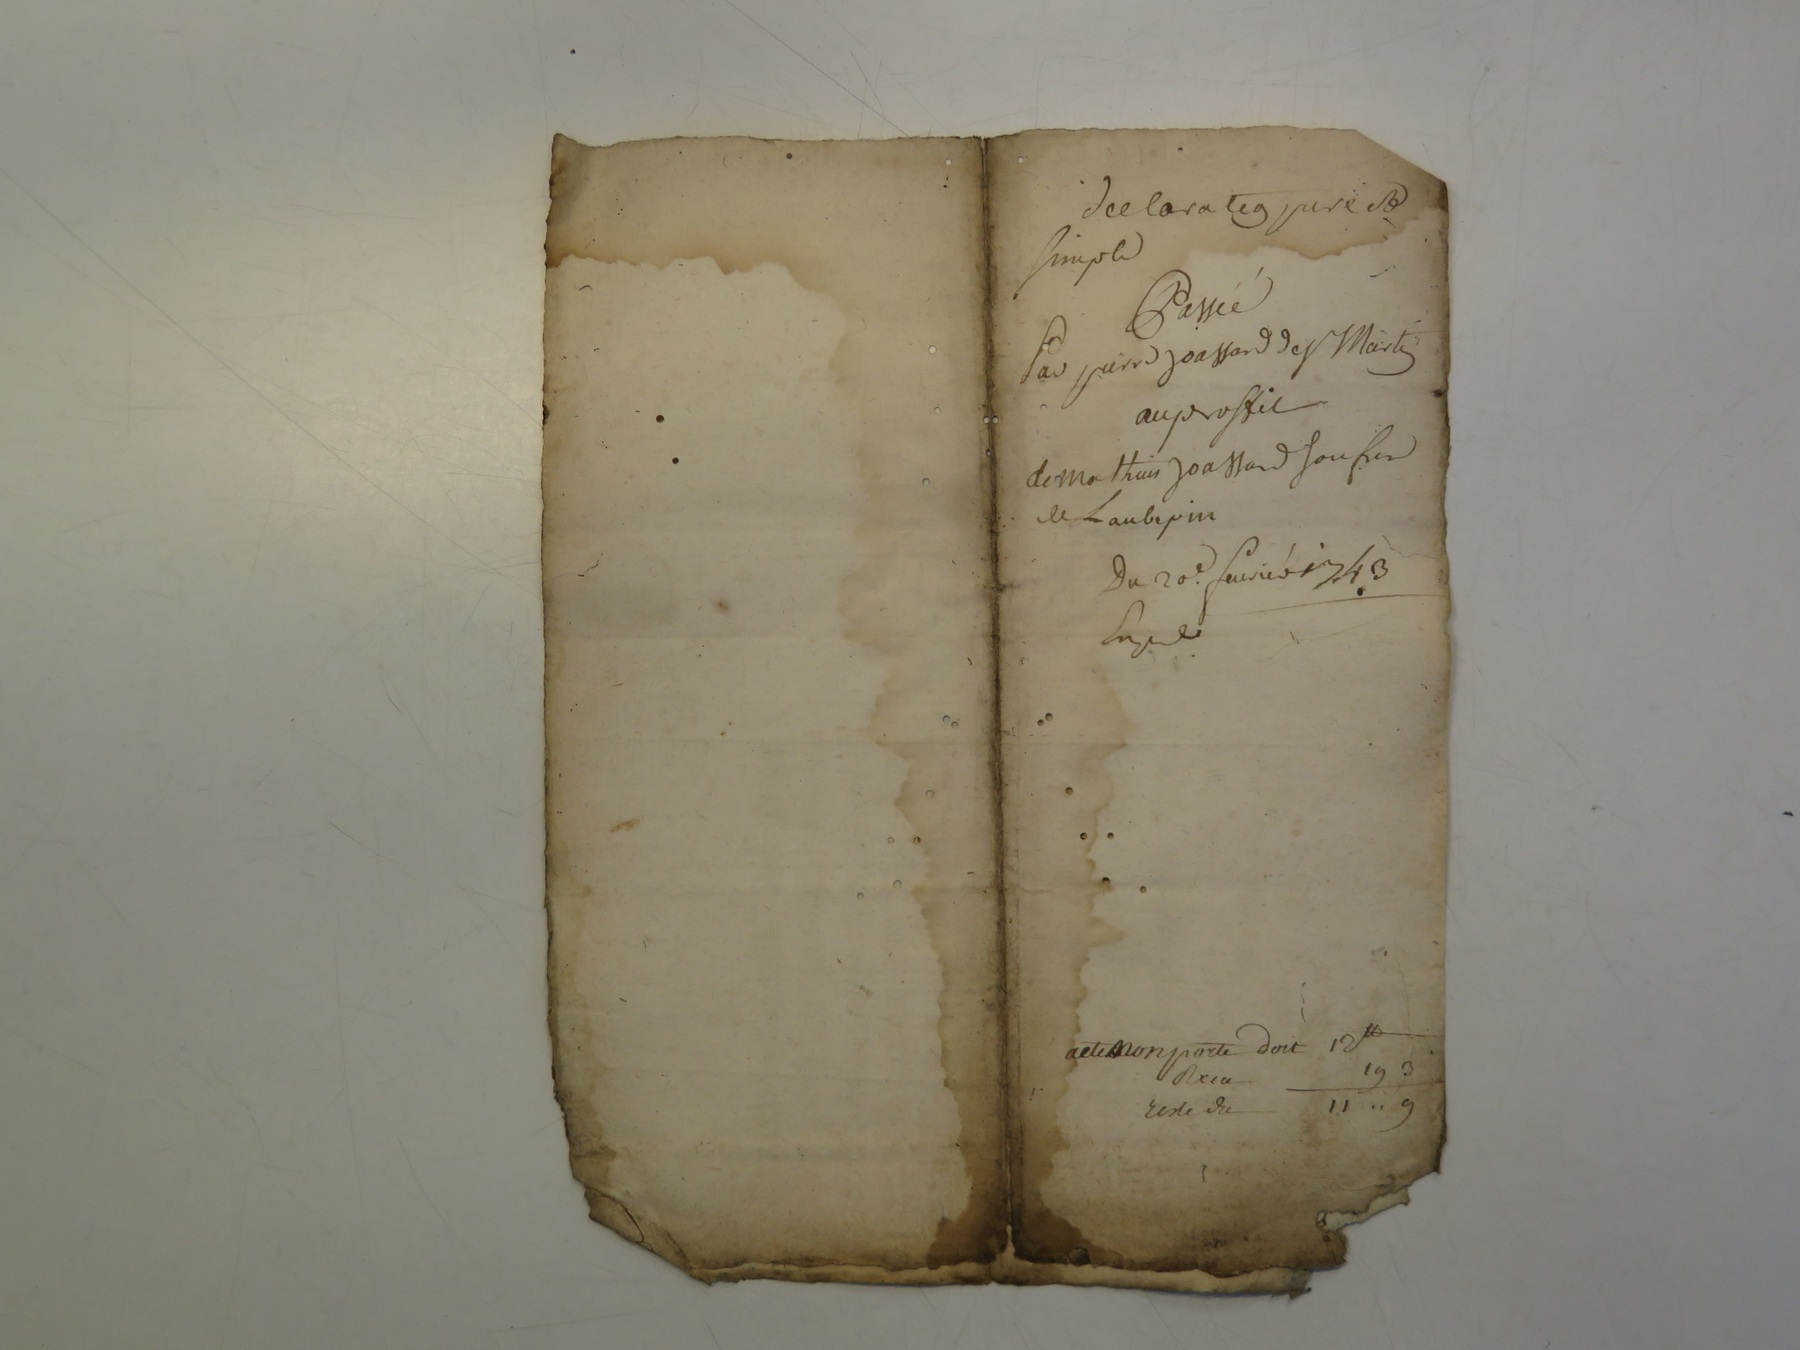 declaration pure &
simple
Passée
Par pierre joassard de st Martin
au proffit
de mathieu joassard son frere
de Laubepin
Du 20e. fevrier 1743
acte non porte doit 12tt
Recu 19 3
reste du 11 .. 9